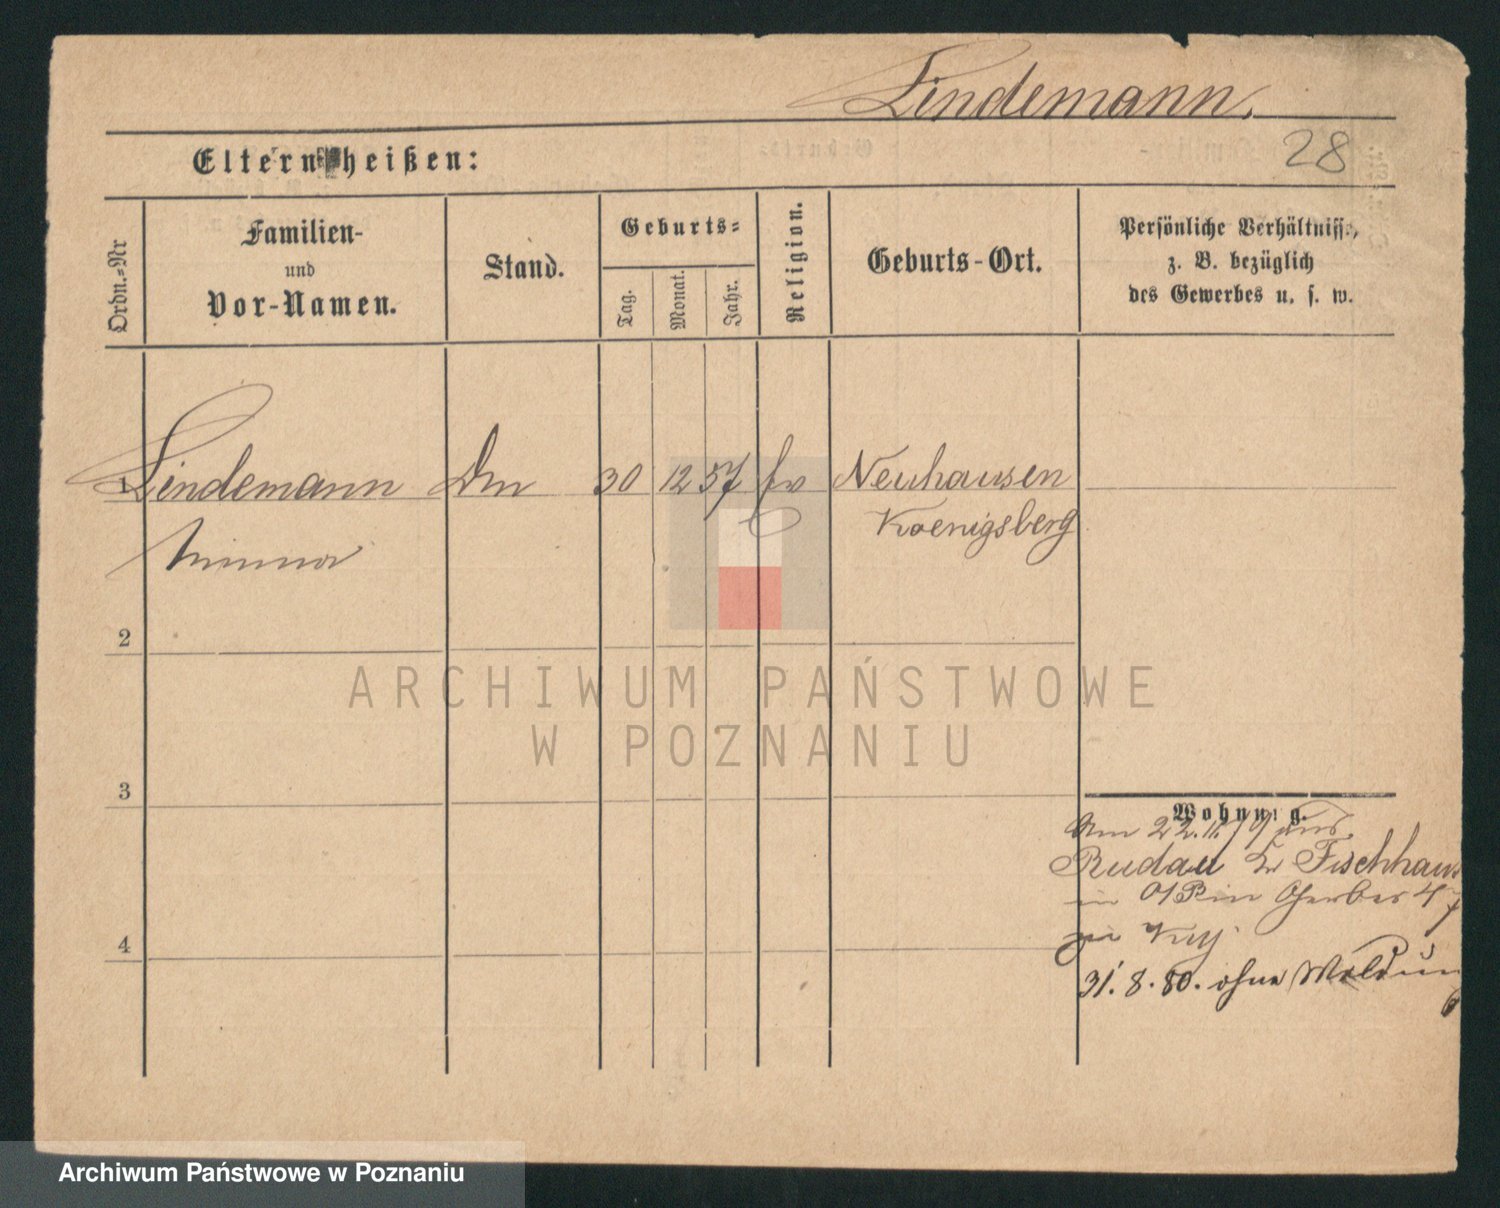 Lindemann.
28
Eltern heißen:
Ordn.=Nr
Familien-
und
Vor-Namen.
Stand.
Geburts=
Tag.
Monat.
Jahr.
Religion.
Geburts-Ort.
Persönliche Verhältnisse,
z. B. bezüglich
des Gewerbes u. s. w.
1 Lindemann Dm 30 12 57 ev Neuhausen
Minna Koenigsberg
2
3
4
Wohnung.
Am 22. 11. 79 aus
Rudau Kr Fischhaus
in Gerber 47
zu
31. 8. 80. ohne Meldung
ARCHIWUM PAŃSTWOWE
W POZNANIU
Archiwum Państwowe w Poznaniu